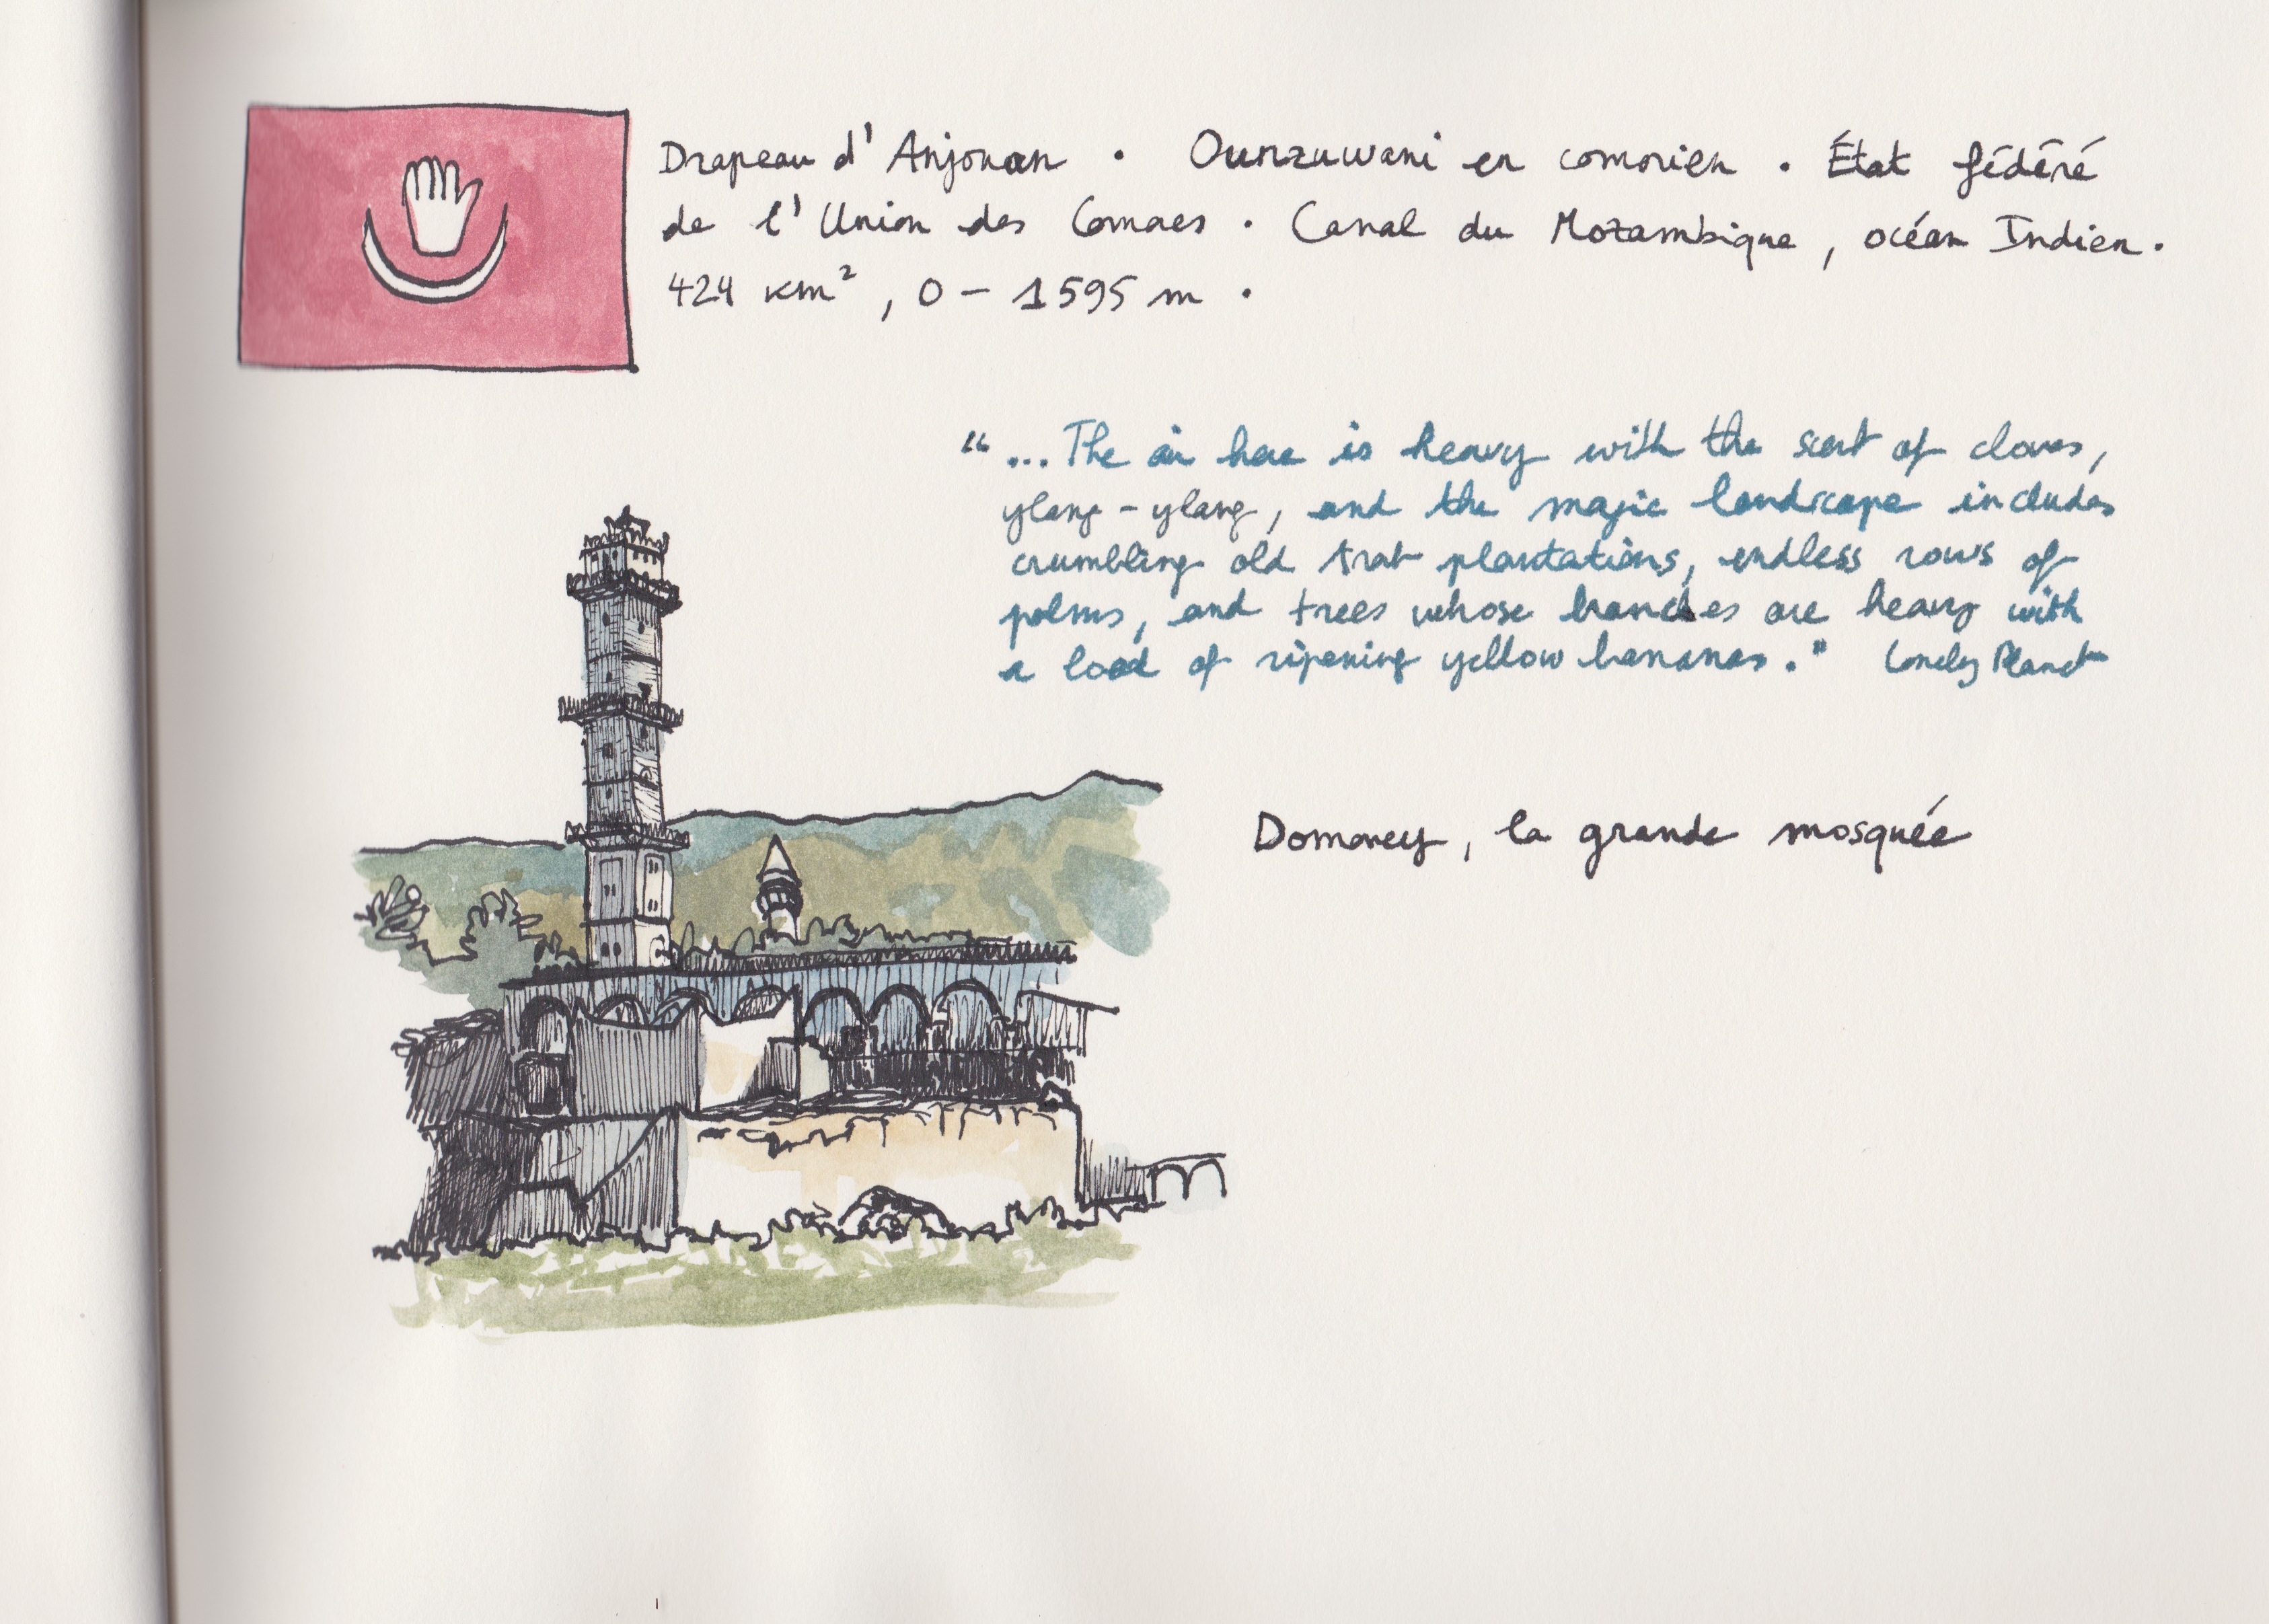 Drapeau d'Anjouan • Ounzuwani en comorien • État fédéré
de l'Union des Comores • Canal du Mozambique, océan Indien.
424 km², 0 – 1595 m •
"...The air here is heavy with the scent of cloves,
ylang-ylang, and the magic landscape includes
crumbling old Arab plantations, endless rows of
palms, and trees whose branches are heavy with
a load of ripening yellow bananas." Lonely Planet
Domoney, la grande mosquée